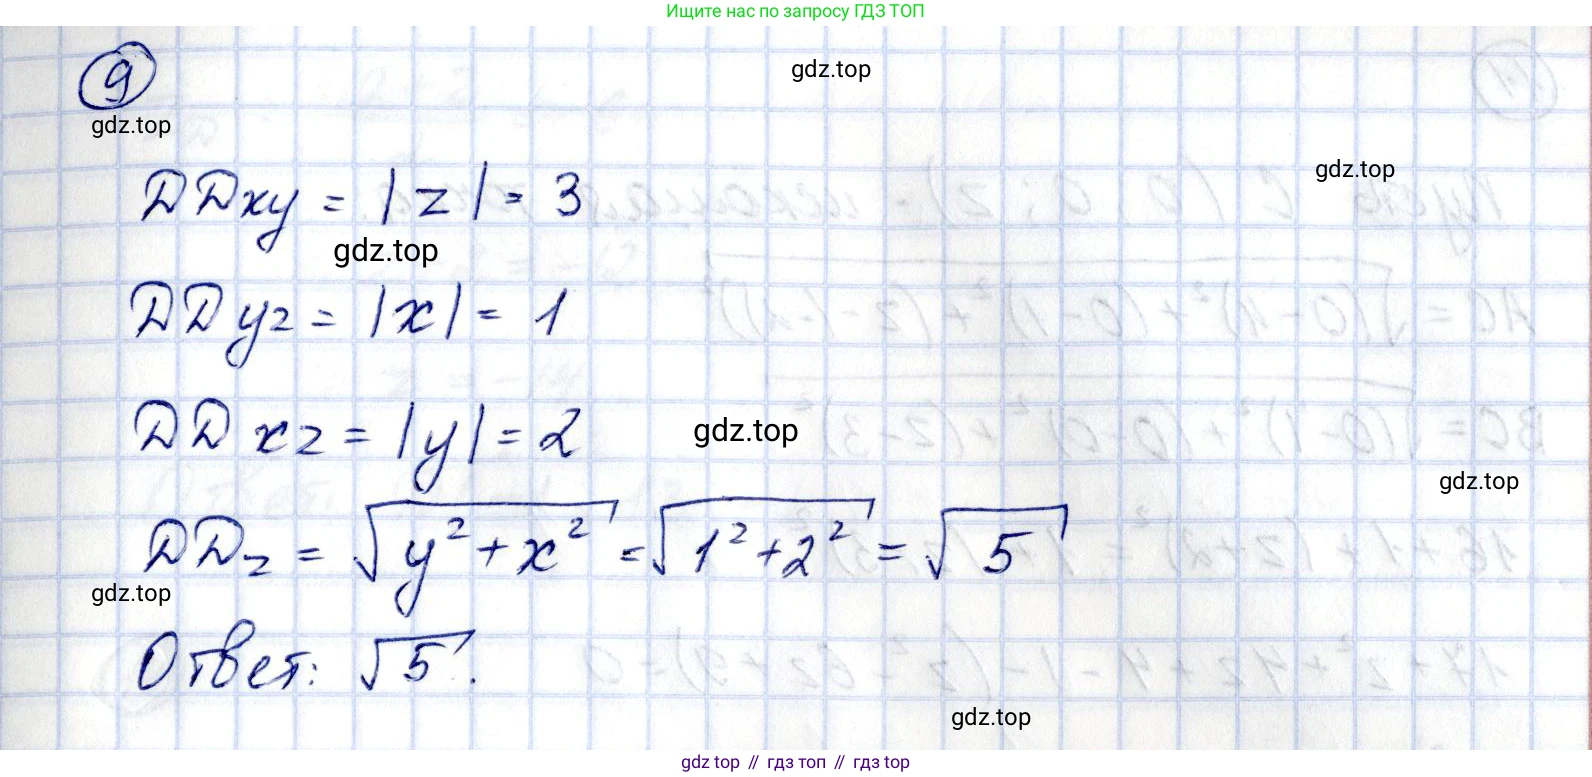 Ищите нас по запросу ГДЗ ТОП
9
gdz.top
gdz.top
gdz.top
DDxy = |z| = 3
gdz.top
DDyz = |x| = 1
DDxz = |y| = 2
gdz.top
gdz.top
DDz = √(y² + x²) = √(1² + 2²) = √5
gdz.top
Ответ: √5.
gdz.top
gdz top // гдз топ // гдз top